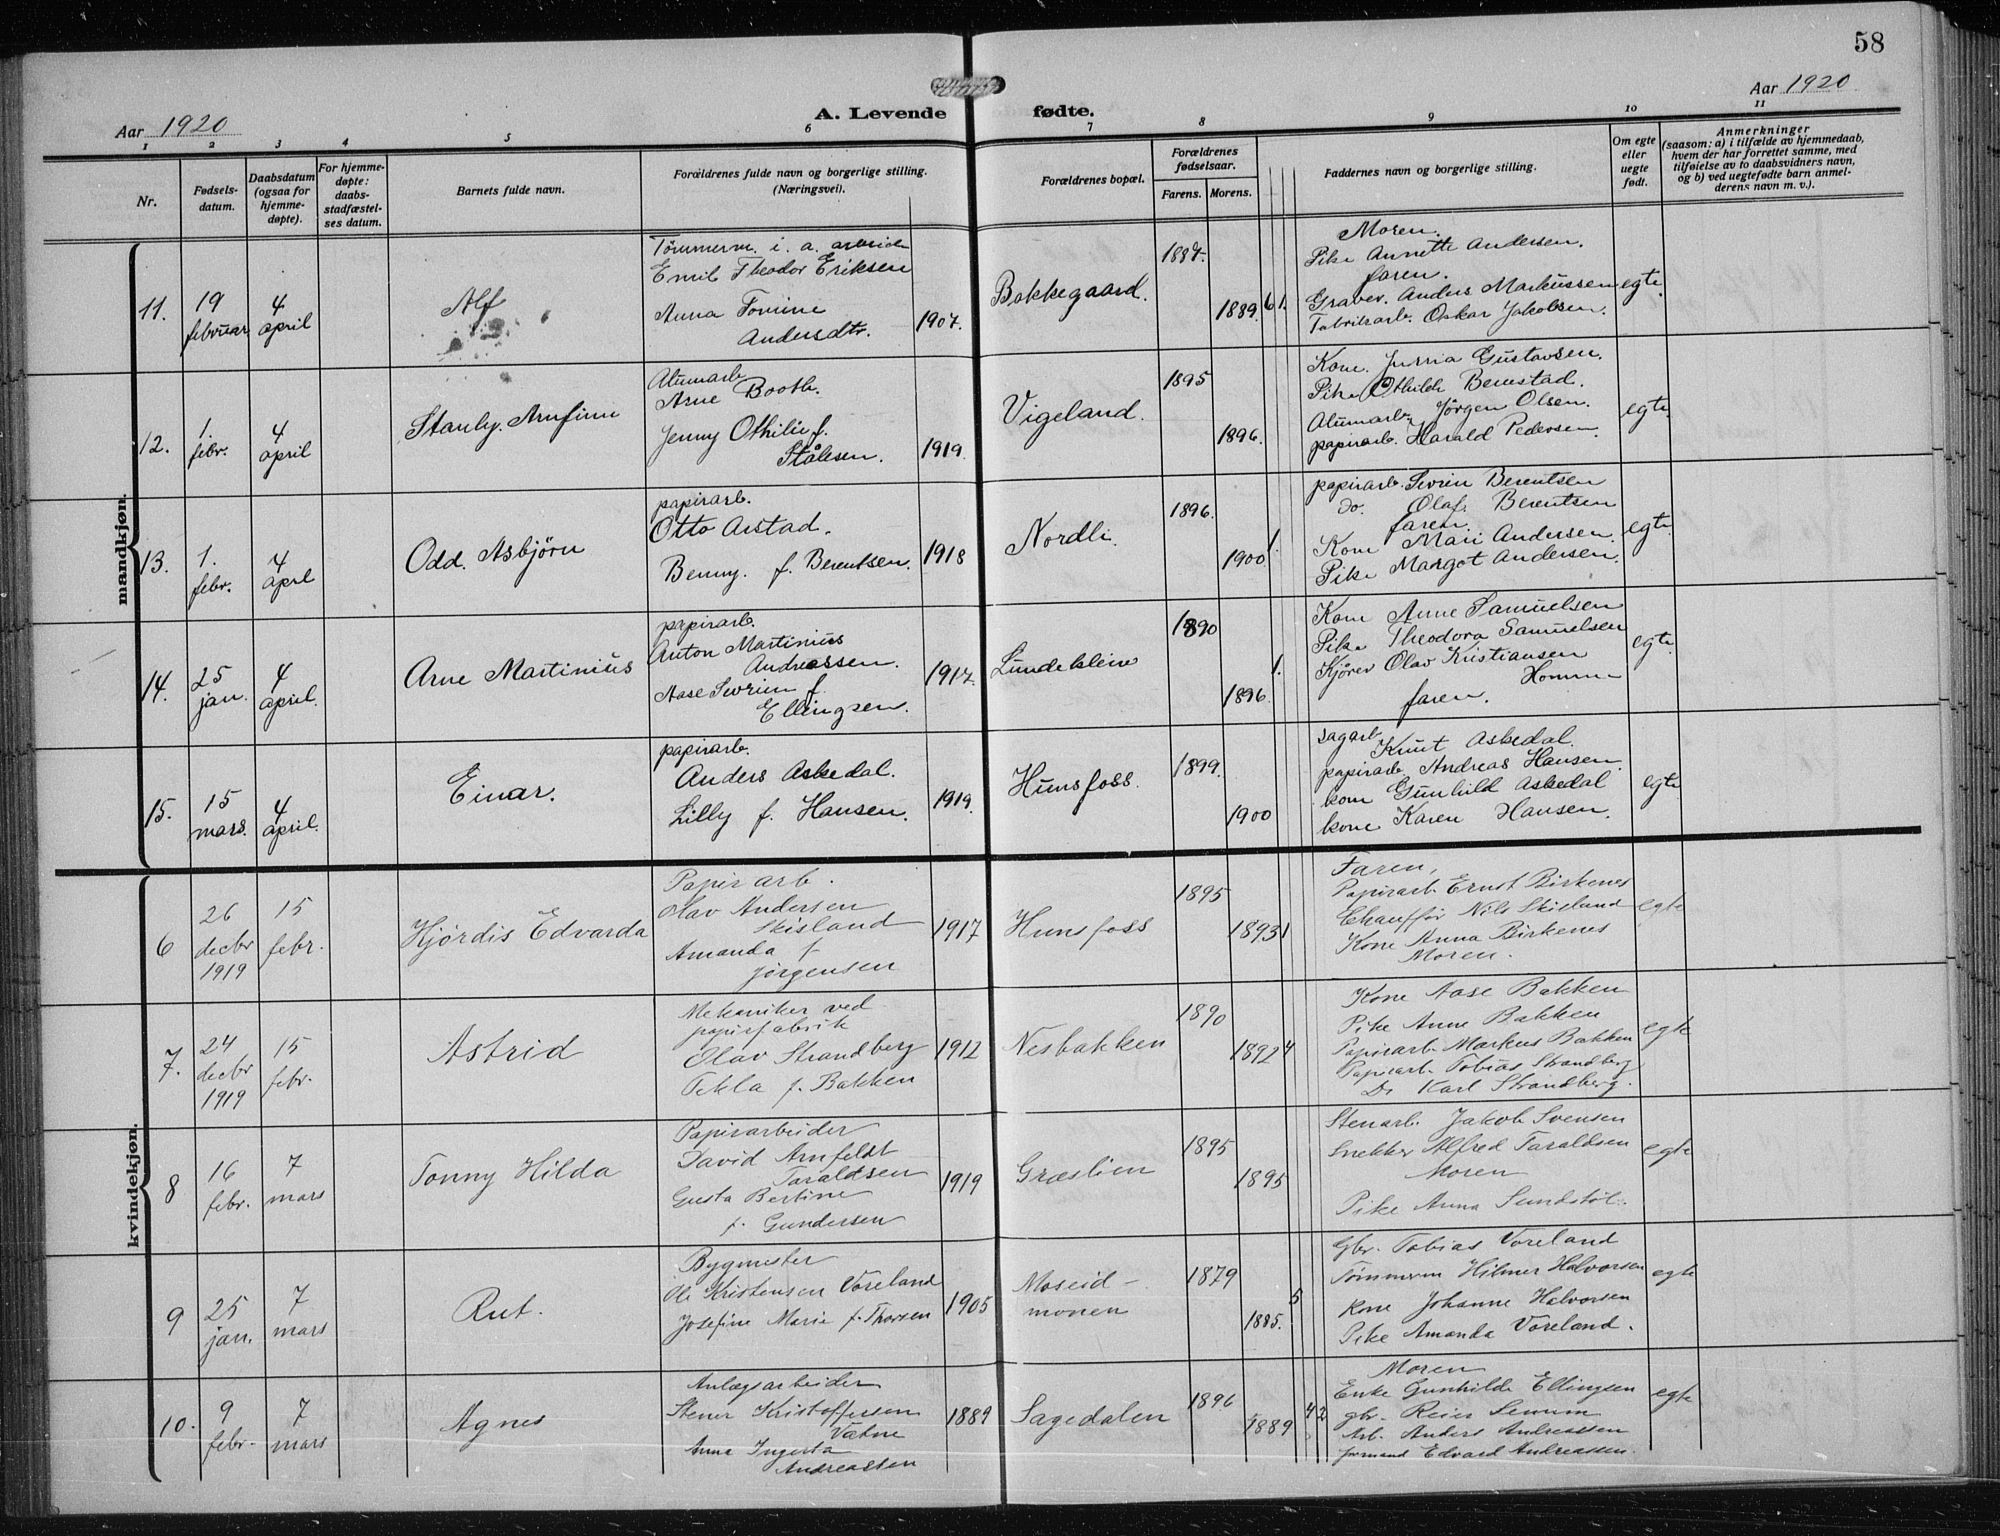 58
Aar 1920
A. Levende fødte.
Aar 1920
1 2 3 4 5 6 7 8 9 10 11
Nr.
Fødsels-
datum.
Daabsdatum
(ogsaa for
hjemme-
døpte).
For hjemme-
døpte:
daabs-
stadfæstel-
ses datum.
Barnets fulde navn.
Forældrenes fulde navn og borgerlige stilling.
(Næringsvei).
Forældrenes bopæl.
Forældrenes
fødselsaar.
Farens. Morens.
Faddernes navn og borgerlige stilling.
Om egte
eller
uegte
født.
Anmerkninger
(saasom: a) i tilfælde av hjemmedaab,
hvem der har forrettet samme, med
tilføielse av to daabsvidners navn,
og b) ved uegtefødte barn anmel-
derens navn m. v.).
mandkjøn.
11.
19
februar
4
april
Alf
Tømmerm. i. a. arbeide
Emil Theodor Eriksen
Anna Tomine
Andersdtr.
1907.
Bakkegaard.
1887.
1889.
6 1.
Moren.
Pike Annette Andersen.
faren.
Graver. Anders Markussen
Fabrikarb. Oskar Jakobsen.
egte.
12.
1.
febr.
4
april
Stanly. Arnfinn
Alumarb.
Arne Booth.
Jenny Othilie f.
Stålesen.
1919.
Vigeland.
1895
1896.
Kone. Gustavsen.
Pike Othilde Berestad.
Alumarb. Jörgen Olsen.
papirarb. Harald Pedersen.
egte.
13.
1.
febr.
4
april
Odd. Asbjörn
papirarb.
Otto Aistad.
Benny. f. Berentsen.
1918
Nordli.
1896.
1900
1.
papirarb. Sevrin Berentsen
Do. Olaf. Berentsen
faren.
Kone Mari Andersen.
Pike Margot Andersen.
egte.
14.
25
jan.
4
april.
Arne Martinius
papirarb.
Anton Martinius
Andreassen.
Aase Sevrine f.
Ellingsen.
1917.
Lundekleiv
1890
1896
1.
Kone Anne Samuelsen
Pike Theodora Samuelsen
Kjører Olav Kristiansen
Homme
faren.
egte.
15.
15
mars.
4
april.
Einar.
papirarb.
Anders Askedal.
Lilly f. Hansen.
1919.
Hunsfoss.
1899.
1900
sagarb.
Knut Askedal.
papirarb Andreas Hansen.
kone Gunhild Askedal
kone Karen Hansen.
egte
kvindekjøn.
6
26
decbr
1919
15
febr.
Hjørdis Edvarda
Papirarb.
Olav Andersen
Skisland
Amanda f
Jørgensen
1917
Hunsfoss
1895
1893
1
Faren,
Papirarb. Ernst Birkenes
Chauffør Nils Skisland
Kone Anna Birkenes
Moren.
egte
7.
24
decbr
1919
15
febr.
Astrid
Mekaniker ved
papirfabrik
Olav Strandberg
Tekla f. Bakken
1912
Nesbakken
1890
1892
4
Kone Aase Bakken
Pike Anne Bakken
Papirarb. Markus Bakken
Papirarb. Tobias Strandberg
Do Karl Strandberg.
egte
8
16
febr.
7
mars
Tonny Hilda
Papirarbeider
David Arnfeldt
Taraldsen
Gusta Bertine
f. Gundersen
1919
Græslien
1895
1895
Stenarb. Jakob Svensen
Snekker Alfred Taraldsen
Moren
Pike Anna Sundstøl.
egte
9
25
jan.
7
mars
Rut.
Bygmester
Ole Kristensen Voreland
Josefine Marie f. Thorsen
1905
Moseid-
monen
1879
1885.
5
Gbr. Tobias Voreland
Tømmerm Hilmer Halvorsen
Kone Johanne Halvorsen
Pike Amanda Voreland.
egte
10.
9
febr.
7
mars
Agnes
Anlægsarbeider
Stener Kristoffersen
Vatne
Anna Ingerta
Andreassen
1889
Sagedalen
1896
1889
4 2
Moren
Enke Gunhilde Ellingsen
gbr. Reier Senum
Arb. Anders Andreassen
formand Edvard Andreassen.
egte